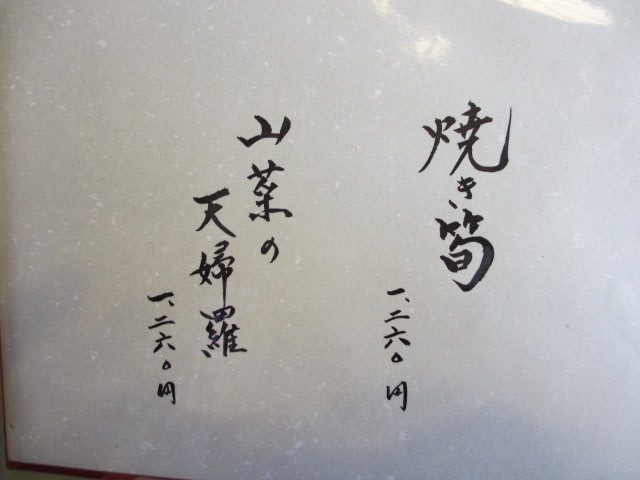 焼き筍
一、二六〇円
山菜の
天婦羅
一、二六〇円